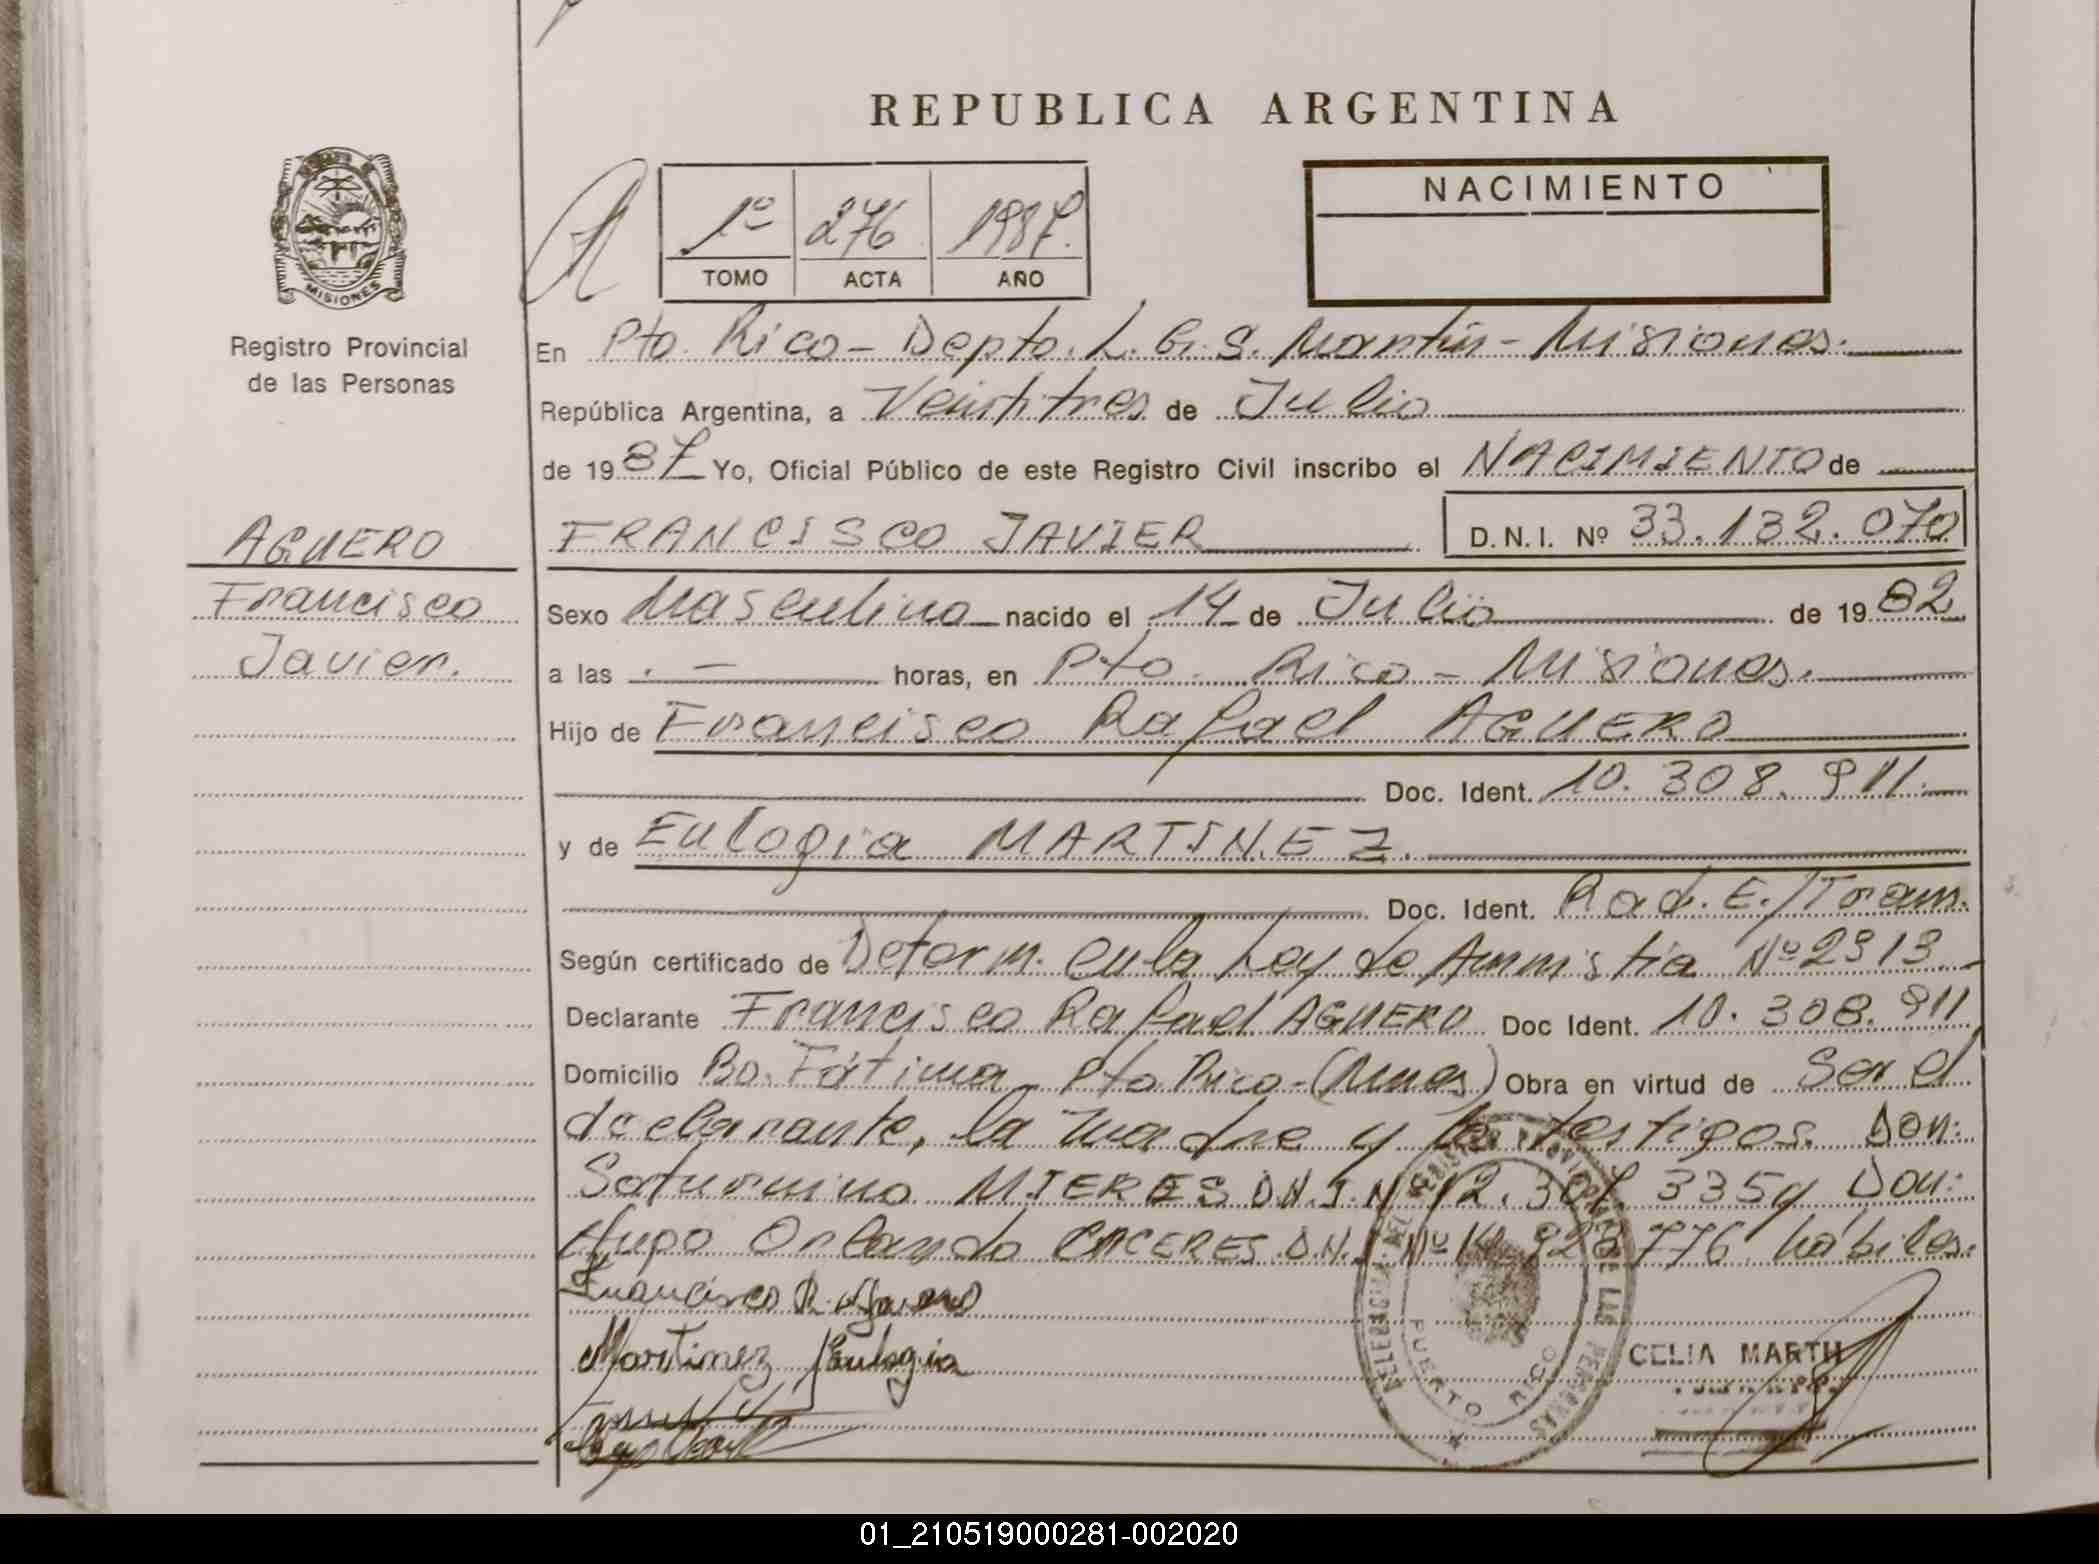 REPUBLICA ARGENTINA
1º 276 1987.
TOMO ACTA AÑO
NACIMIENTO
MISIONES
Registro Provincial
de las Personas
En Pto. Rico - Depto. L. G. S. Martín - Misiones.
República Argentina, a Veintitres de Julio
de 1987 Yo, Oficial Público de este Registro Civil inscribo el NACIMIENTO de
AGUERO
Francisco
Javier.
FRANCISCO JAVIER D.N.I. Nº 33.132.070
Sexo Masculino nacido el 14 de Julio de 1982
a las . — horas, en Pto. Rico - Misiones.
Hijo de Francisco Rafael AGUERO
Doc. Ident. 10.308.911.
y de Eulogia MARTINEZ.
Doc. Ident. Rad. E./Tram.
Según certificado de Determ. en la Ley de Amnistia Nº 2313.
Declarante Francisco Rafael AGUERO Doc Ident. 10.308.911
Domicilio Bo. Fátima - Pto Rico - (Mnes) Obra en virtud de Ser el
declarante, la madre y los testigos. Don:
Saturnino MIERES D.N.I. Nº 12. 335 y Don:
Hugo Orlando CACERES D.N.I. Nº 14.928.776 hábiles.
Francisco R. Aguero
Martinez Eulogia
DELEGACION DEL REGISTRO PROVINCIAL DE LAS PERSONAS
PUERTO RICO
CELIA MARTH
01_210519000281-002020